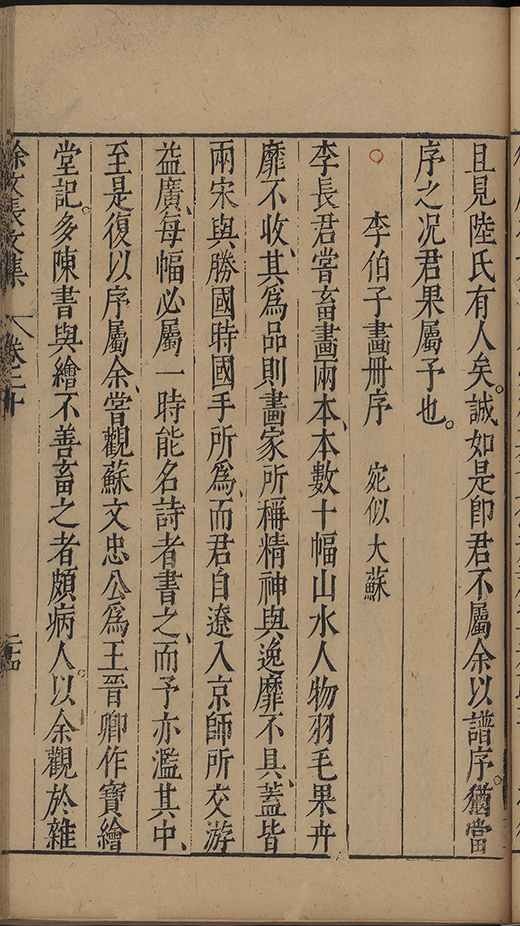 且見陸氏有人矣。誠如是即君不屬余以譜序。猶當
序之况君果屬予也。
○ 李伯子畫冊序 宛似大蘇
李長君嘗畜畫兩本、本數十幅山水人物羽毛果卉
靡不收、其爲品則畫家所稱精神與逸靡不具、蓋皆
兩宋與勝國時國手所爲、而君自遼入京師所交游
益廣、每幅必屬一時能名詩者書之、而予亦濫其中、
至是復以序屬余、嘗觀蘇文忠公爲王晉卿作寶繪
堂記。多陳書與繪不善畜之者頗病人。以余觀於雜
徐文長文集 卷二十 二十四